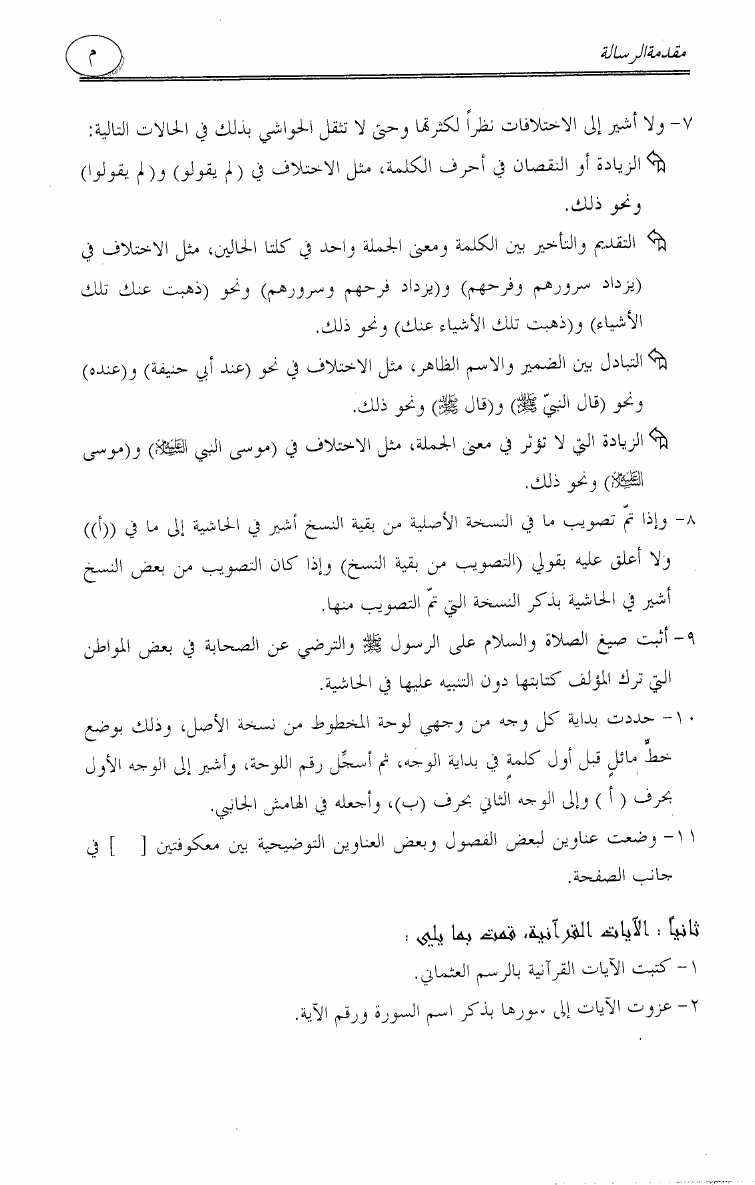 مقدمة الرسالة
م
٧- ولا أشير إلى الاختلافات نظراً لكثرتها وحتى لا تثقل الحواشي بذلك في الحالات التالية:
الزيادة أو النقصان في أحرف الكلمة، مثل الاختلاف في (لم يقولو) و(لم يقولوا)
ونحو ذلك.
التقديم والتأخير بين الكلمة ومعنى الجملة واحد في كلتا الحالين، مثل الاختلاف في
(يزداد سرورهم وفرحهم) و(يزداد فرحهم وسرورهم) ونحو (ذهبت عنك تلك
الأشياء) و(ذهبت تلك الأشياء عنك) ونحو ذلك.
التبادل بين الضمير والاسم الظاهر، مثل الاختلاف في نحو (عند أبي حنيفة) و(عنده)
ونحو (قال النبيّ ﷺ) و(قال ﷺ) ونحو ذلك.
الزيادة التي لا تؤثر في معنى الجملة، مثل الاختلاف في (موسى النبي عليه السلام) و(موسى
عليه السلام) ونحو ذلك.
٨- وإذا تمّ تصويب ما في النسخة الأصلية من بقية النسخ أشير في الحاشية إلى ما في ((أ))
ولا أعلق عليه بقولي (التصويب من بقية النسخ) وإذا كان التصويب من بعض النسخ
أشير في الحاشية بذكر النسخة التي تمّ التصويب منها.
٩- أثبت صيغ الصلاة والسلام على الرسول ﷺ والترضي عن الصحابة في بعض المواطن
التي ترك المؤلف كتابتها دون التنبيه عليها في الحاشية.
١٠- حددت بداية كل وجه من وجهي لوحة المخطوط من نسخة الأصل، وذلك بوضع
خطٍّ مائلٍ قبل أول كلمةٍ في بداية الوجه، ثم أسجِّل رقم اللوحة، وأشير إلى الوجه الأول
بحرف ( أ ) وإلى الوجه الثاني بحرف (ب)، وأجعله في الهامش الجانبي.
١١- وضعت عناوين لبعض الفصول وبعض العناوين التوضيحية بين معكوفتين [ ] في
جانب الصفحة.
ثانياً : الآيات القرآنية، قمت بما يلي :
١- كتبت الآيات القرآنية بالرسم العثماني.
٢- عزوت الآيات إلى سورها بذكر اسم السورة ورقم الآية.